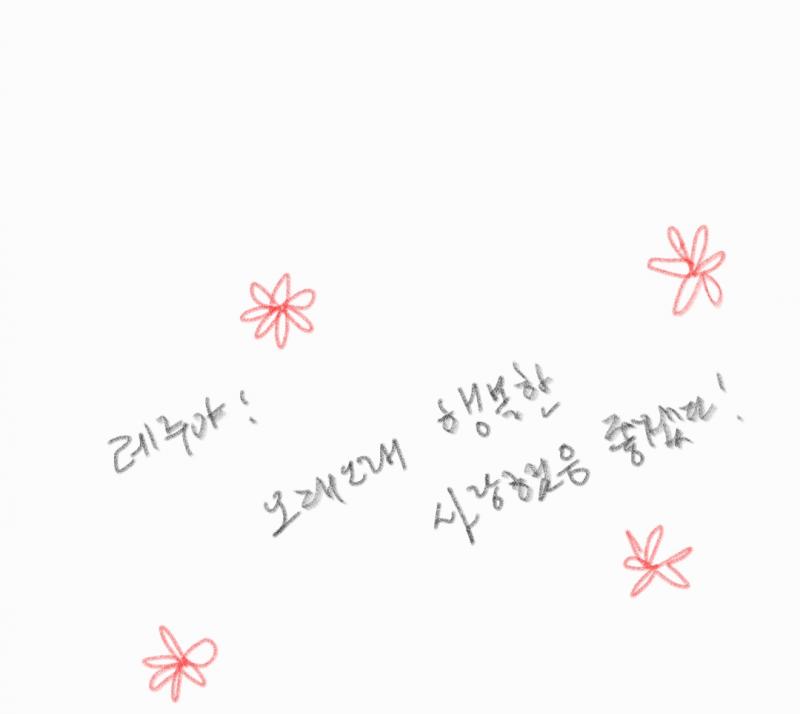 레주야!
오래오래 행복한
사랑했음 좋겠다!